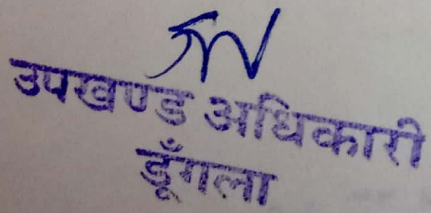 उपखण्ड अधिकारी
डूँगला